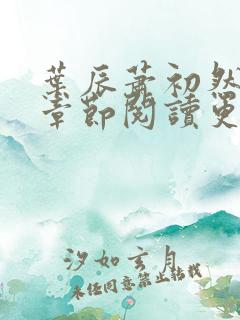 葉辰蕭初然
章節閱讀更
汐如玄月
未经同意禁止转载